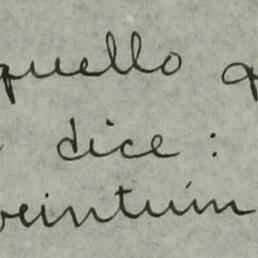 quello q
dice:
veintuin